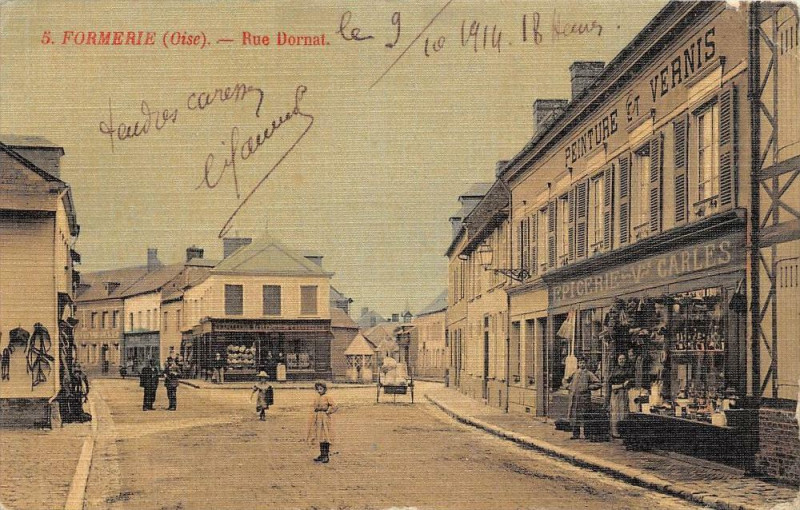 5. FORMERIE (Oise). — Rue Dornat.
le 9/10 1914. 18 heures.
tendres caresses
PEINTURE ET VERNIS
EPICERIE - Vve CARLES